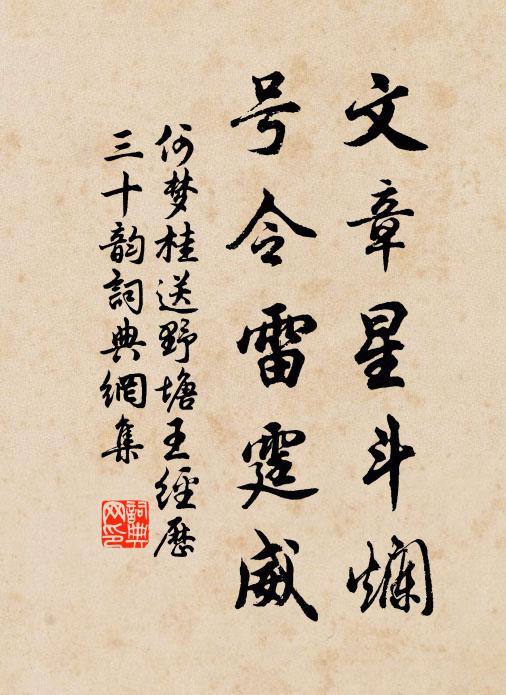 文章星斗斓
号令雷霆威
何梦桂送野塘王经历
三十韵詞典網集
詞典网印